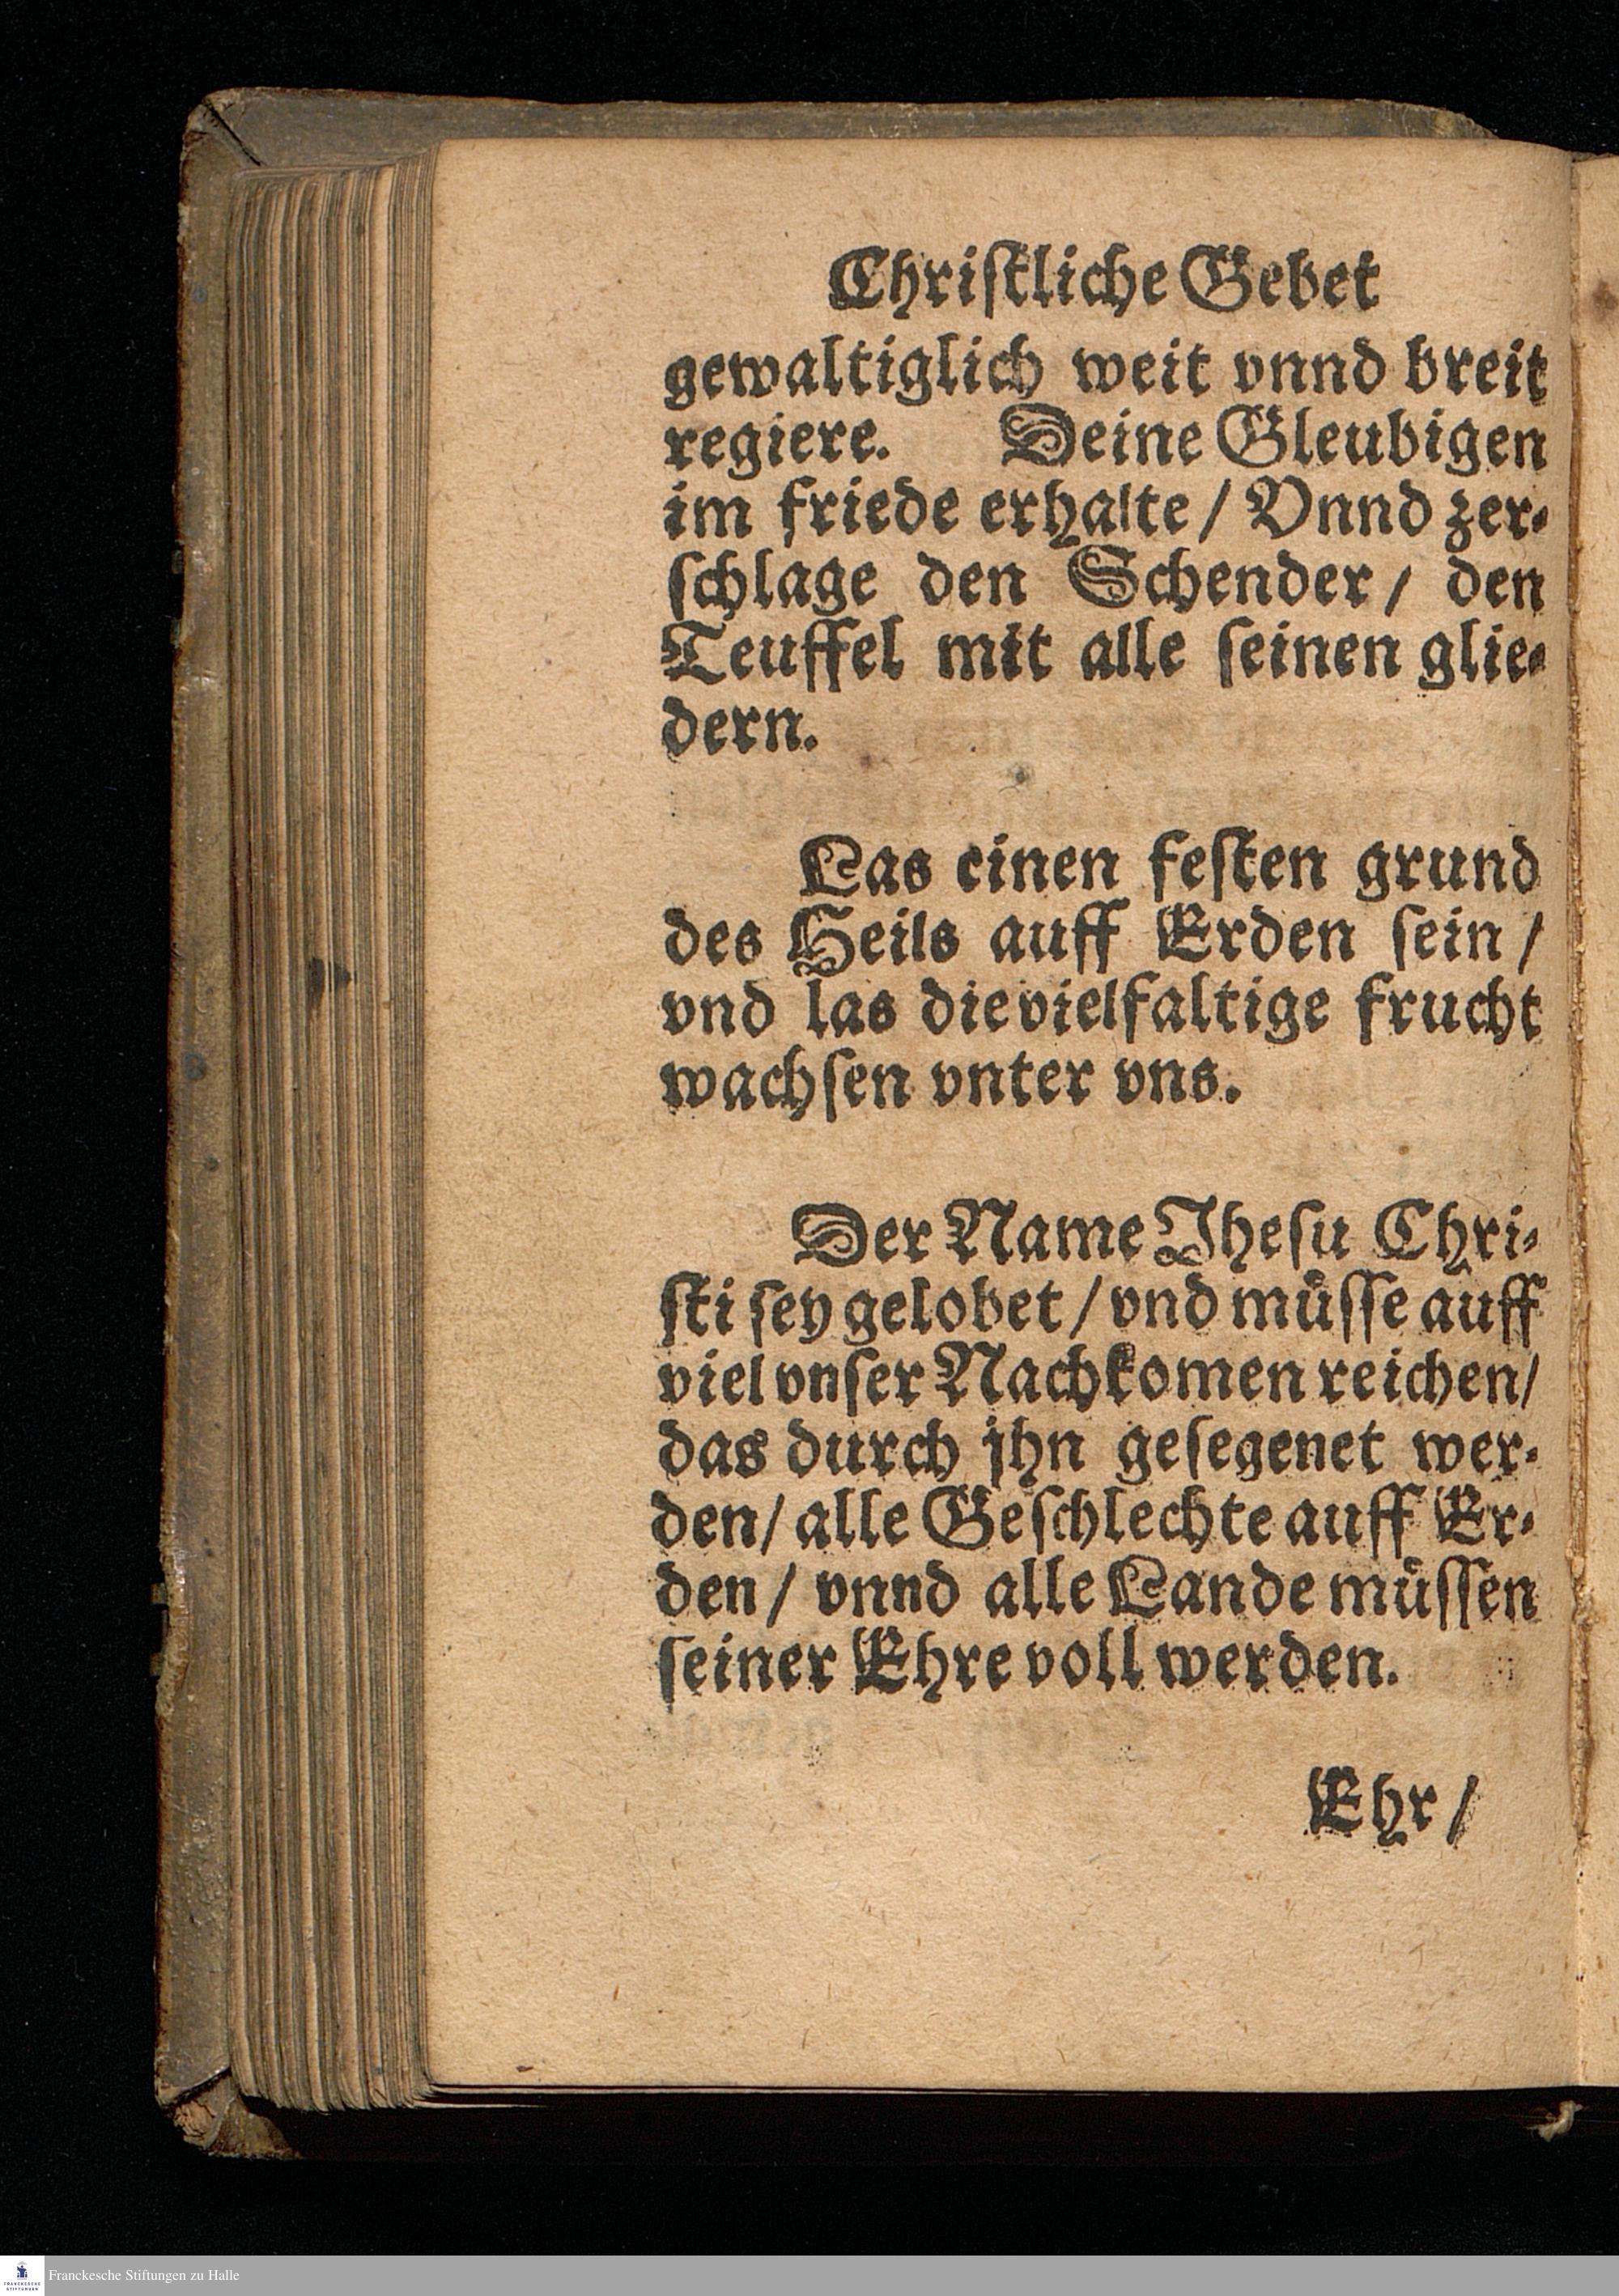 Chriſtliche Gebet
gewaltiglich weit vnnd breit
regiere. Deine Gleubigen
im friede erhalte / Vnnd zer⸗
ſchlage den Schender / den
Teuffel mit alle ſeinen glie⸗
dern.
Las einen feſten grund
des Heils auff Erden ſein /
vnd las die vielfaltige frucht
wachſen vnter vns.
Der Name Jheſu Chri⸗
ſti ſey gelobet / vnd muͤſſe auff
viel vnſer Nachkomen reichen /
das durch jhn geſegenet wer⸗
den / alle Geſchlechte auff Er⸗
den / vnnd alle Lande muͤſſen
ſeiner Ehre voll werden.
Ehr /
FRANCKESCHE
STIFTUNGEN
Franckesche Stiftungen zu Halle